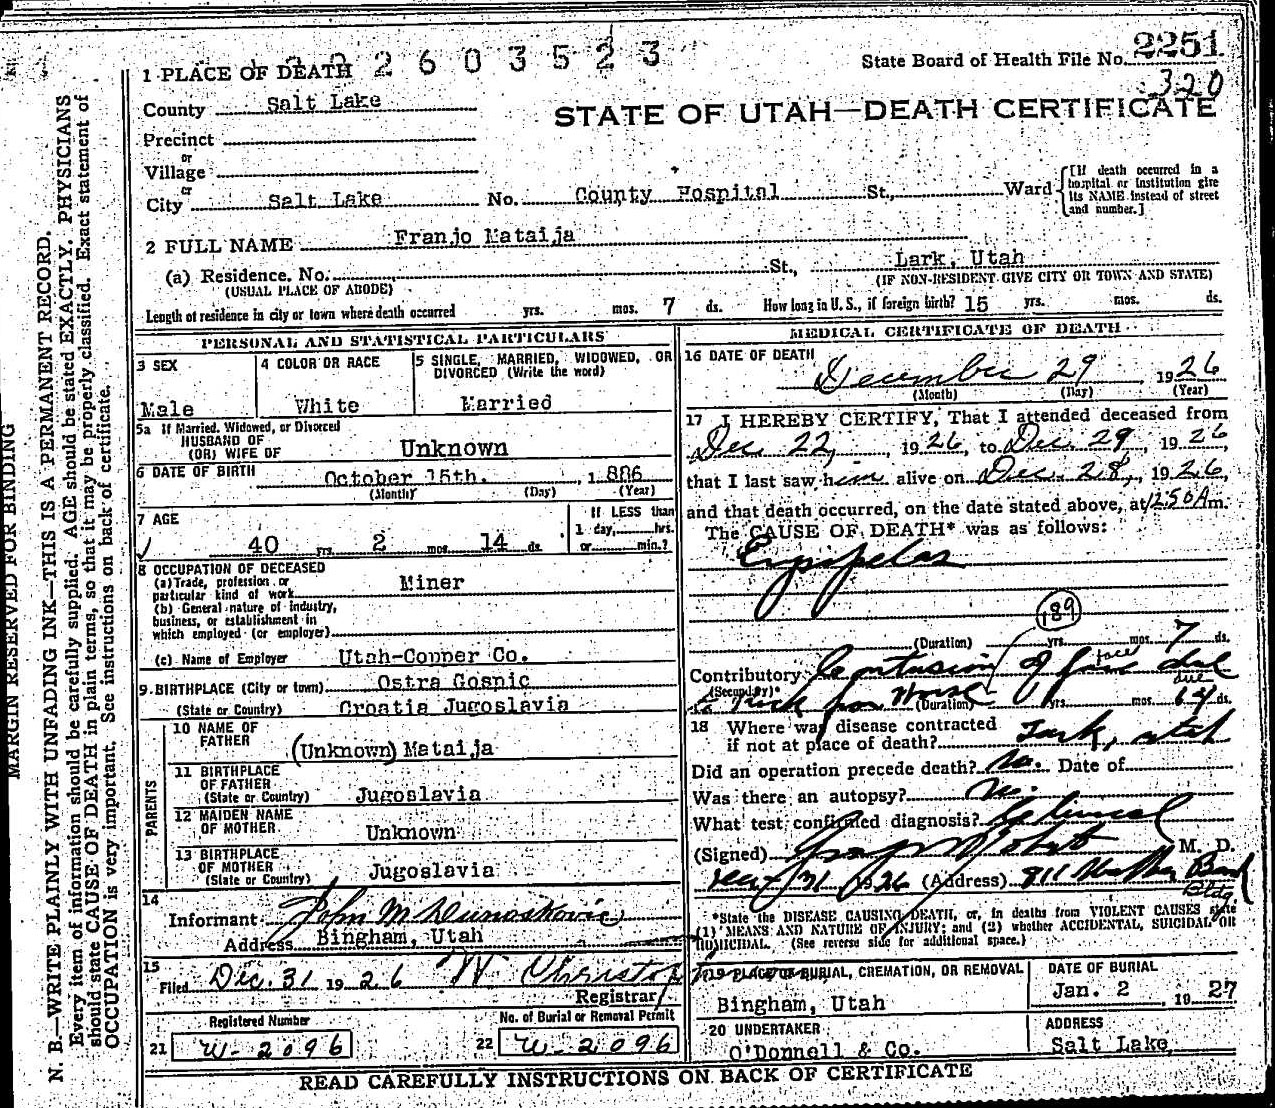 2603523
State Board of Health File No. 2251
320
1 PLACE OF DEATH
County Salt Lake
STATE OF UTAH—DEATH CERTIFICATE
Precinct
or
Village
or
City Salt Lake No. County Hospital St., Ward [If death occurred in a hospital or institution give its NAME instead of street and number.]
2 FULL NAME Franjo Mataija
(a) Residence. No. St., Lark, Utah
(USUAL PLACE OF ABODE) (IF NON-RESIDENT GIVE CITY OR TOWN AND STATE)
Length of residence in city or town where death occurred yrs. mos. 7 ds. How long in U. S., if foreign birth? 15 yrs. mos. ds.
PERSONAL AND STATISTICAL PARTICULARS
3 SEX
Male
4 COLOR OR RACE
White
5 SINGLE, MARRIED, WIDOWED, OR
DIVORCED (Write the word)
Married
5a If Married, Widowed, or Divorced
HUSBAND OF
(OR) WIFE OF Unknown
6 DATE OF BIRTH October 15th. , 1 886
(Month) (Day) (Year)
7 AGE
40 yrs. 2 mos. 14 ds.
If LESS than
1 day, hrs.
or min.?
8 OCCUPATION OF DECEASED
(a) Trade, profession or
particular kind of work Miner
(b) General nature of industry,
business, or establishment in
which employed (or employer)
(c) Name of Employer Utah-Copper Co.
9 BIRTHPLACE (City or town) Ostra Gospic
(State or Country) Croatia Jugoslavia
PARENTS
10 NAME OF
FATHER (Unknown) Mataija
11 BIRTHPLACE
OF FATHER
(State or Country) Jugoslavia
12 MAIDEN NAME
OF MOTHER Unknown
13 BIRTHPLACE
OF MOTHER
(State or Country) Jugoslavia
14
Informant John M
Address Bingham, Utah
15
Filed Dec. 31 1926 W
Registrar
Registered Number
21 W-2096
No. of Burial or Removal Permit
22 W-2096
MEDICAL CERTIFICATE OF DEATH
16 DATE OF DEATH
December 29 , 1926
(Month) (Day) (Year)
17 I HEREBY CERTIFY, That I attended deceased from
Dec. 22, , 1926, to Dec. 29, 1926,
that I last saw him alive on Dec. 28, , 1926,
and that death occurred, on the date stated above, at 12:50 A m.
The CAUSE OF DEATH* was as follows:
Erysipelas
189
(Duration) yrs. mos. 7 ds.
Contributory Contusion of face due
face
(Secondary)* to kick from Horse due
(Duration) yrs. mos. 14 ds.
18 Where was disease contracted
if not at place of death? Lark, Utah
Did an operation precede death? No. Date of
Was there an autopsy? No.
What test confirmed diagnosis? Clinical
(Signed) M. D.
Dec 31 1926 (Address) 811 Bank
Bldg.
*State the DISEASE CAUSING DEATH, or, in deaths from VIOLENT CAUSES state
(1) MEANS AND NATURE OF INJURY; and (2) whether ACCIDENTAL, SUICIDAL OR
HOMICIDAL. (See reverse side for additional space.)
19 PLACE OF BURIAL, CREMATION, OR REMOVAL
Bingham, Utah
DATE OF BURIAL
Jan. 2 , 1927
20 UNDERTAKER
O'Donnell & Co.
ADDRESS
Salt Lake
READ CAREFULLY INSTRUCTIONS ON BACK OF CERTIFICATE
MARGIN RESERVED FOR BINDING
N. B.—WRITE PLAINLY WITH UNFADING INK—THIS IS A PERMANENT RECORD.
Every item of information should be carefully supplied. AGE should be stated EXACTLY. PHYSICIANS
should state CAUSE OF DEATH in plain terms, so that it may be properly classified. Exact statement of
OCCUPATION is very important. See instructions on back of certificate.